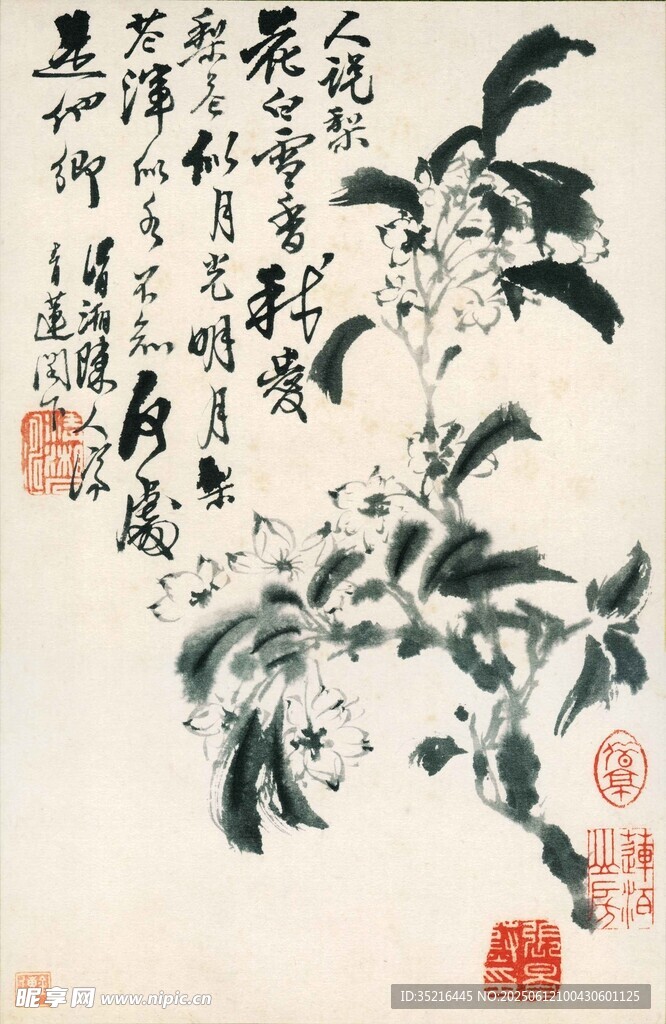 人說梨
花白雪香我愛
梨花似月光明月梨
花渾似水不知何處
是他鄉
清湘陳人濟
青蓮閣下
昵享网 www.nipic.cn
ID:35216445 NO:20250612100430601125